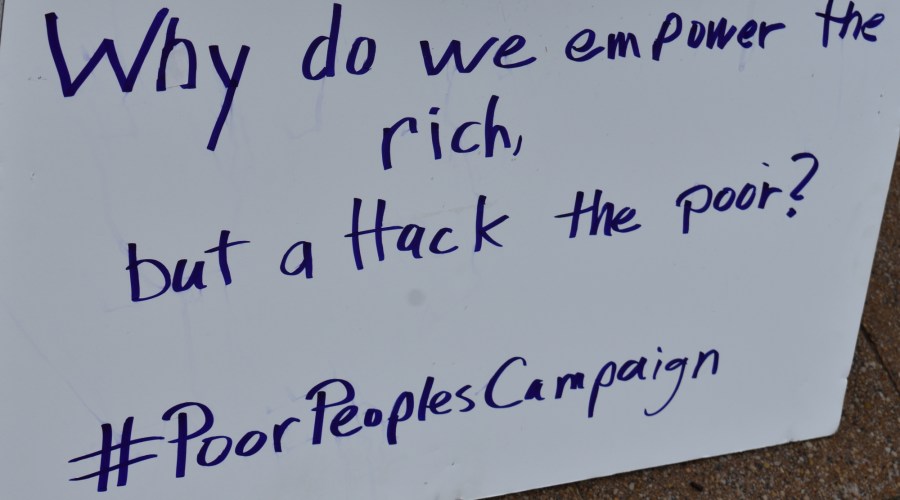 Why do we empower the
rich,
but attack the poor?
#PoorPeoplesCampaign